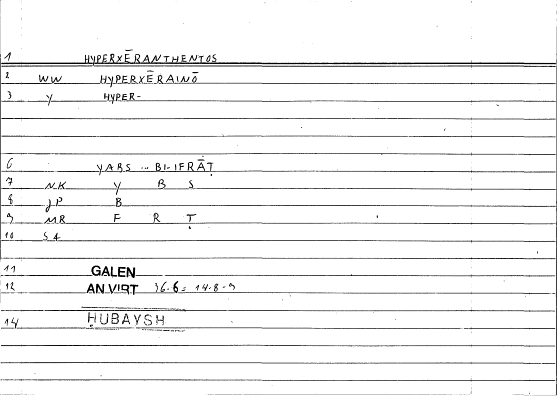 1 HYPERXĒRANTHENTOS
2 WW HYPERXĒRAINŌ
3 Y HYPER-
6 YABS ... BI-IFRĀṬ
7 N.K Y B S
8 JP B
9 MR F R Ṭ
10 S4
11 GALEN
12 AN.VIRT 36.6 = 14.8-9
14 ḤUBAYSH